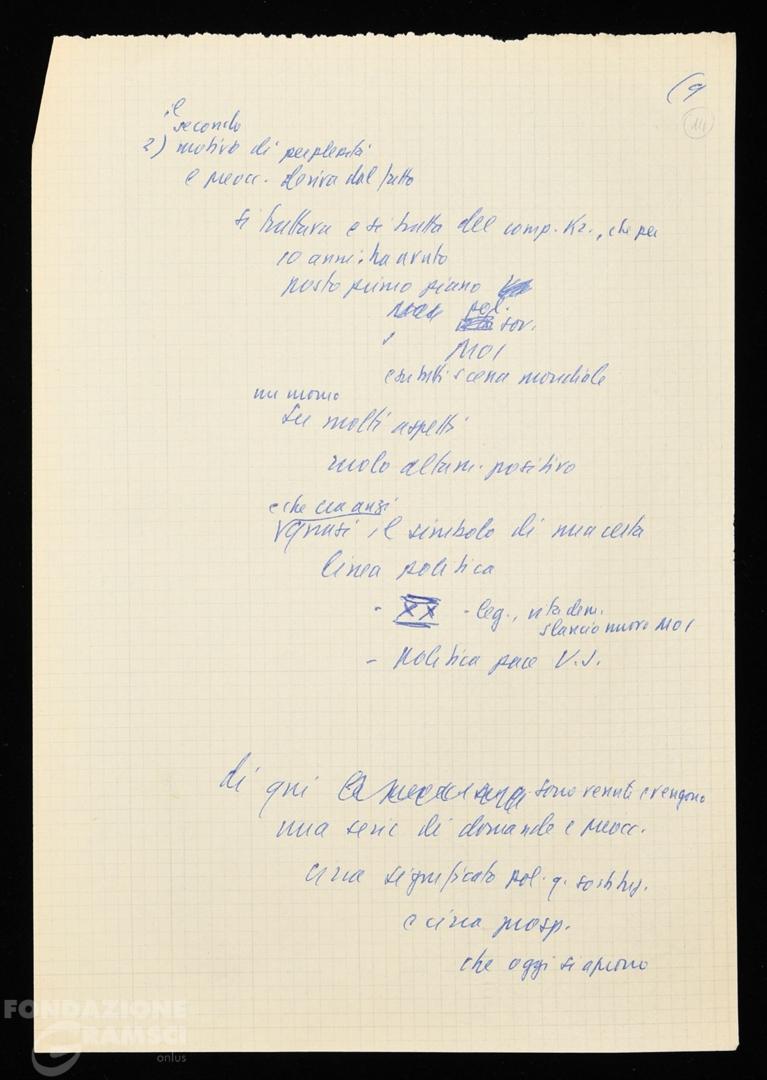 (9
14
il
secondo
2) motivo di perplessità
e preocc. deriva dal fatto
si trattava e si tratta del comp. Kr., che per
10 anni ha avuto
posto primo piano
pol.
sov.
MOI
e su tutta scena mondiale
un uomo
su molti aspetti
ruolo altam. positivo
e che era anzi
quasi il simbolo di una certa
linea politica
- XX - leg., vita dem.
slancio nuovo MOI
- politica pace V.S.
di qui sono venuti e vengono
una serie di domande e preocc.
circa significato pol. q. sostituz.
e circa prosp.
che oggi si aprono
FONDAZIONE
GRAMSCI
onlus